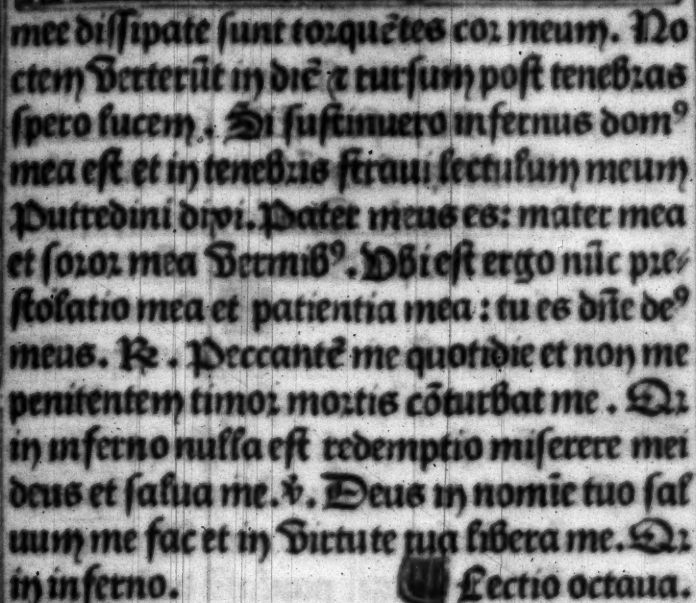 mee dissipate sunt torquẽtes cor meum. No
ctem verterũt in diẽ ⁊ rursum post tenebras
spero lucem. Si sustinuero infernus domꝰ
mea est et in tenebris straui lectulum meum
Putredini dixi. Pater meus es: mater mea
et soror mea vermibꝰ. Vbi est ergo nũc pre⸗
stolatio mea et patientia mea: tu es dñe deꝰ
meus. ℟. Peccantẽ me quotidie et non me
penitentem timor mortis cõturbat me. Qꝛ
in inferno nulla est redemptio miserere mei
deus et salua me. ℣. Deus in nomĩe tuo sal
uum me fac et in virtute tua libera me. Qꝛ
in inferno. Lectio octaua.